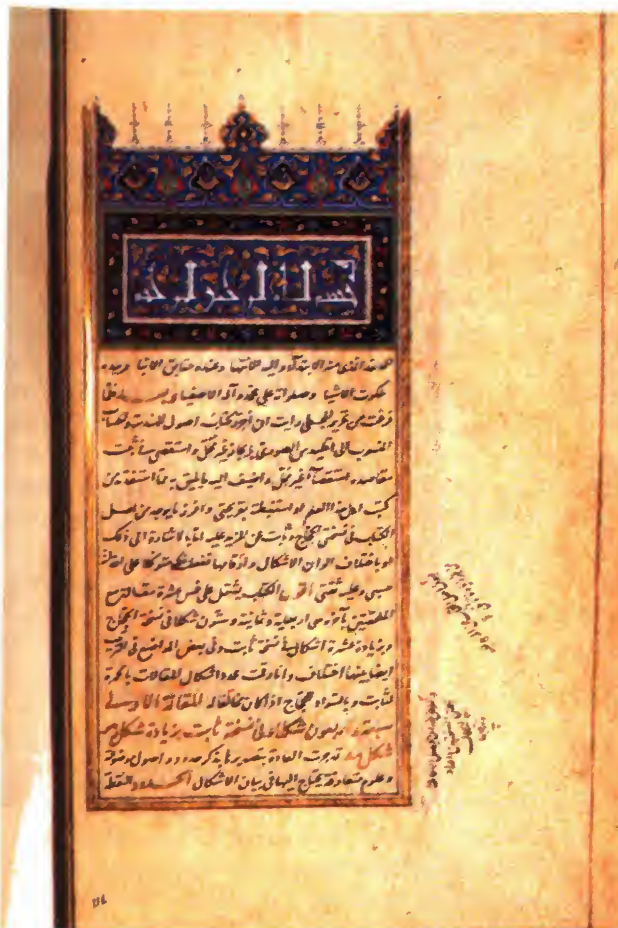 بسم الله الرحمن الرحيم
الحمد لله الذي منه الابتداء واليه الانتهاء وعنده حقايق الانباء وبيده
ملكوت الاشياء وصلواته على محمد وآله الاصفياء وبعد فلما
فرغت من تحرير المجسطى رايت ان احرر كتاب اصول الهندسة والحساب
المنسوب الى اقليدس الصورى بايجاز غير مخل واستقصى في تثبيت
مقاصده استقصاء غير ممل واضيف اليه ما يليق به مما استفدته من
كتب اهل هذا العلم او استنبطته بقريحتى وافرز ما يوجد من اصل
الكتاب فى نسختى الحجاج وثابت عن المزيد عليه اما بالاشارة الى ذلك
او باختلاف الوان الاشكال وارقامها ففعلت متوكلا على الله انه
حسبى وعليه ثقتى اقول الكتاب يشتمل على خمس عشرة مقالة مع
الملحقتين بآخره وهى اربعماية وثمانية وستون شكلا فى نسخة الحجاج
وبزيادة عشرة اشكال فى نسخة ثابت وفى بعض المواضع فى الترتيب
ايضا بينهما اختلاف وانا رقمت عدد اشكال المقالات بالحمرة
لثابت وبالسواد للحجاج اذا كان مخالفا له المقالة الاولى
سبعة واربعون شكلا وفى نسخة ثابت بزيادة شكل مه
شكل مه قد جرت العادة بتصدير ما بذكر حدود واصول موضوعة
وعلوم متعارفة يحتاج اليها فى بيان الاشكال الحدود النقطة